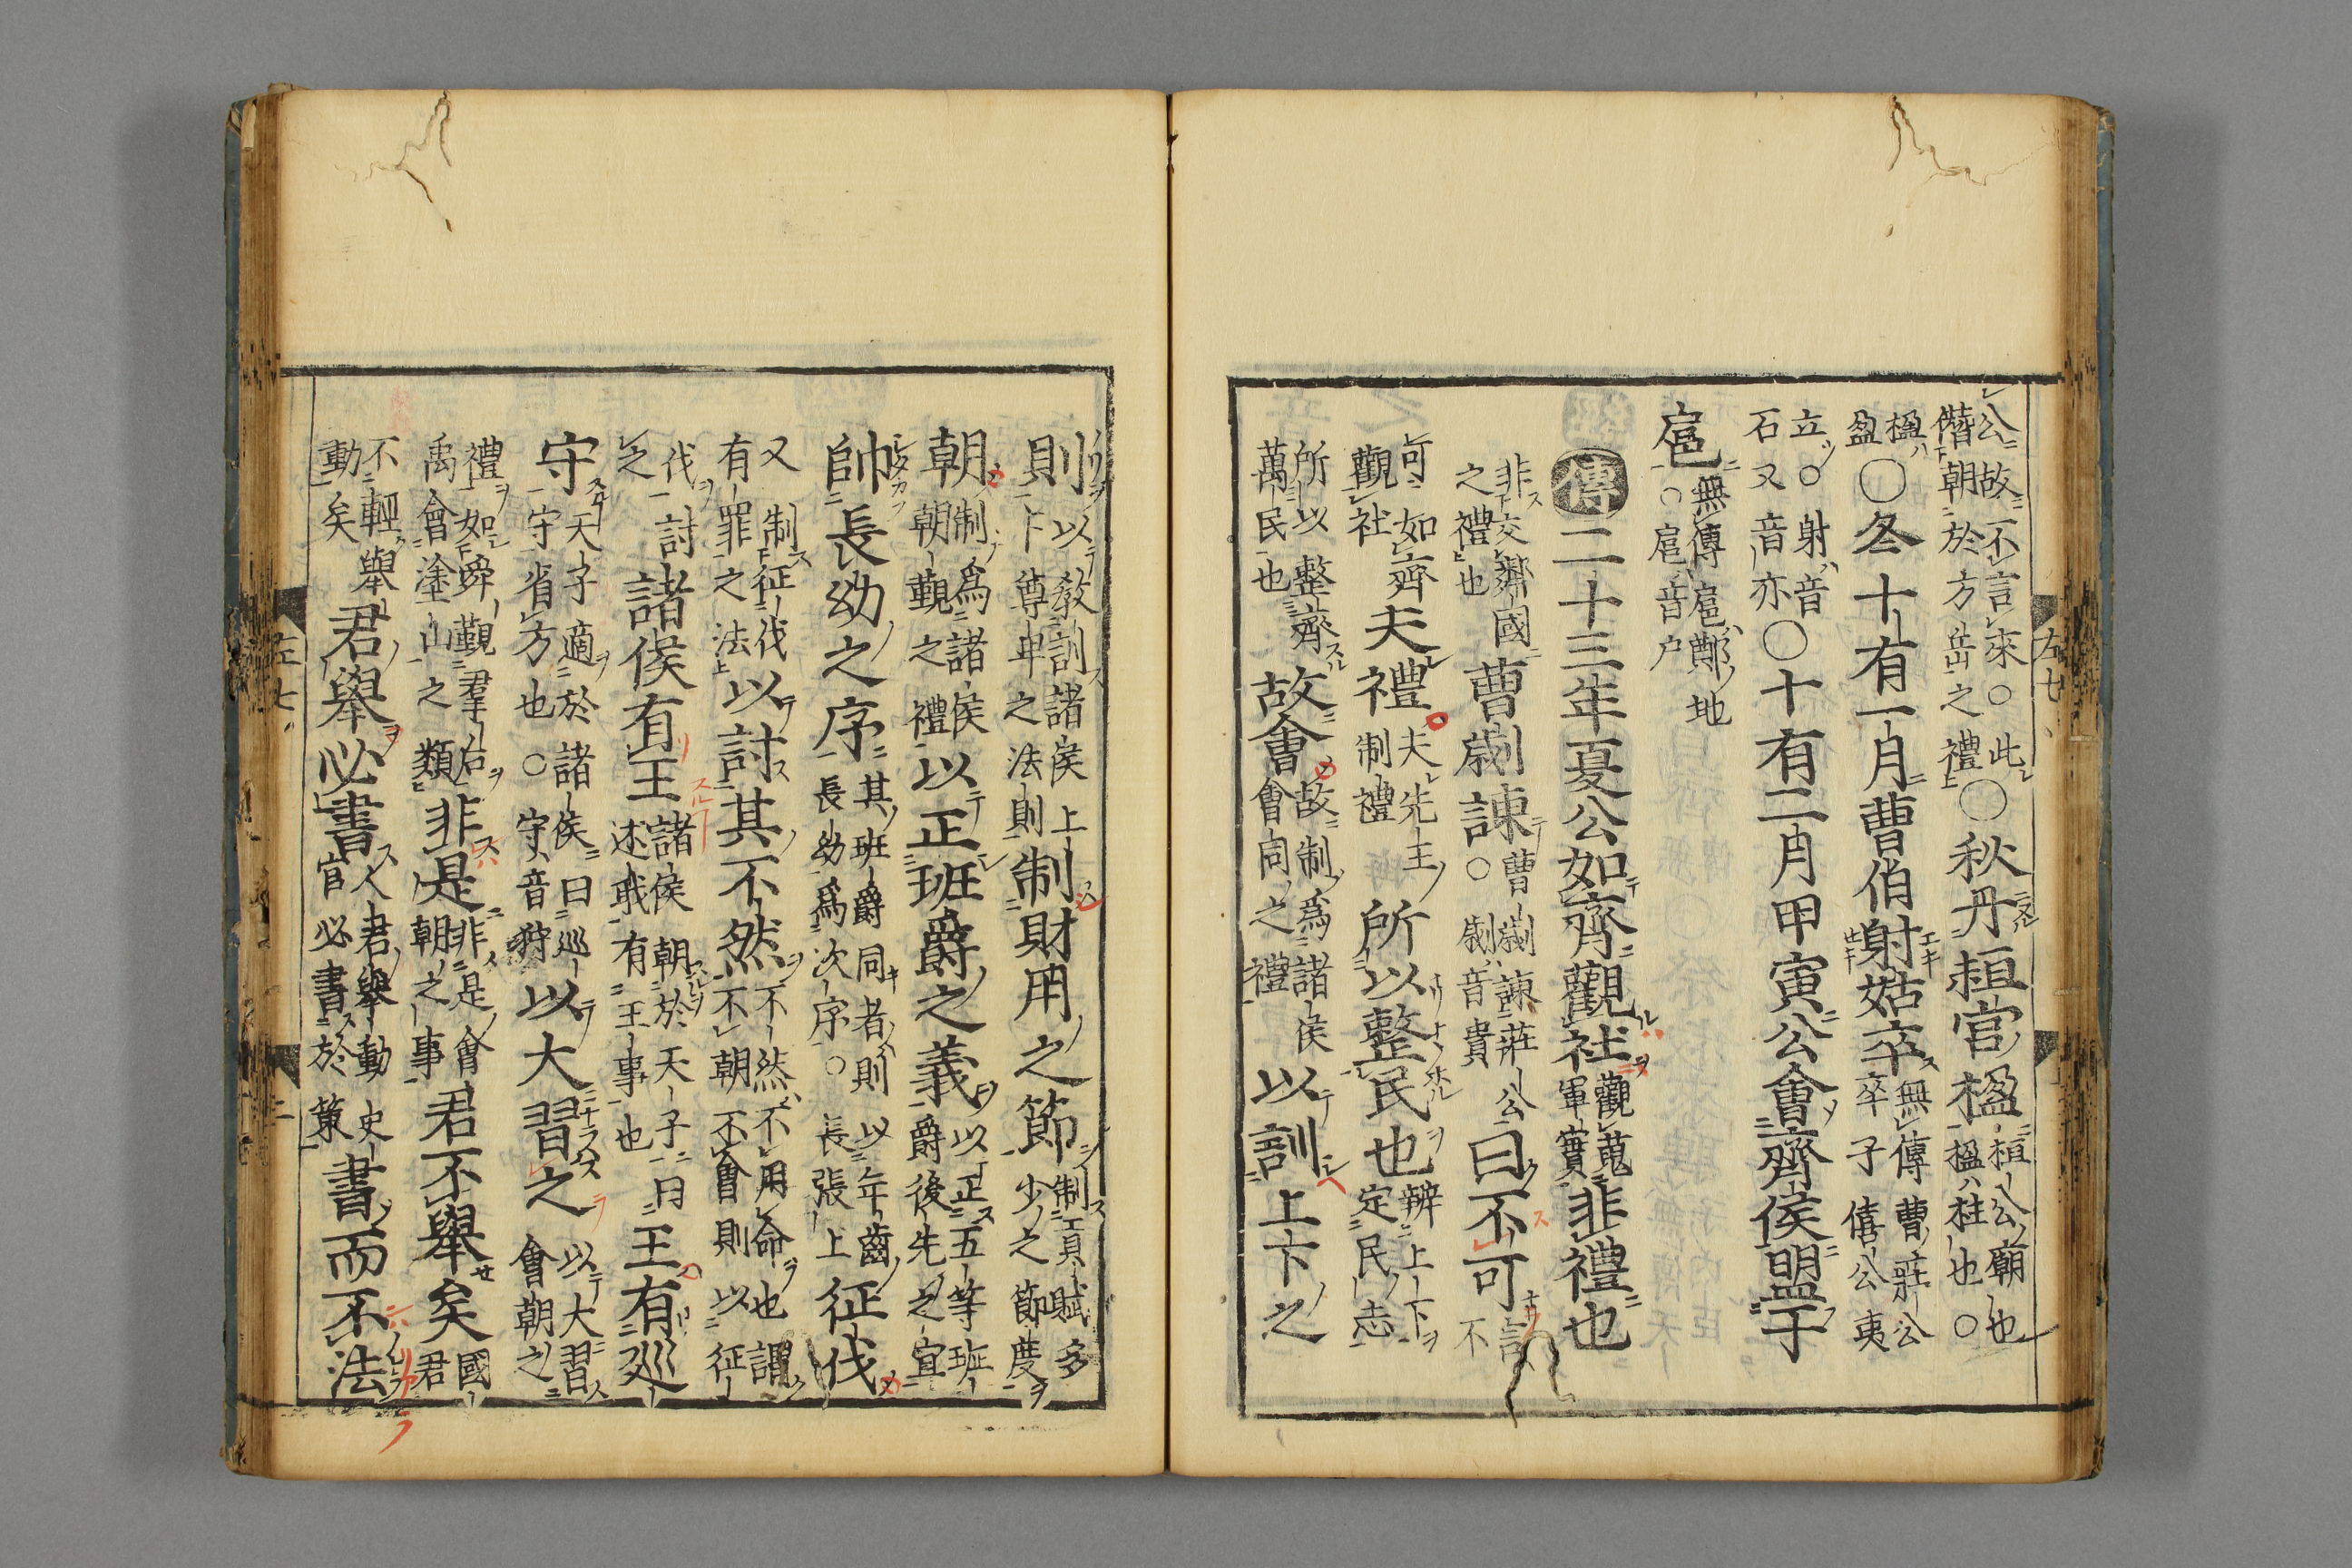 公故不言來○此
僭朝於方岳之禮○秋丹桓宮楹桓公廟也○
楹柱也○
楹
盈○冬十有一月曹伯射姑卒無傳曹莊公
卒子僖公夷
立○射音
石又音亦○十有二月甲寅公會齊侯盟于
扈無傳扈鄭地
○扈音户
傳二十三年夏公如齊觀社觀蒐
軍實非禮也
非交鄰國
之禮也曹劌諫曹劌諫莊公
○劌音貴曰不可言不
可如齊
觀社夫禮夫先王
制禮所以整民也辨上下
定民志
所以整齊
萬民也故會故制為諸侯
會同之禮以訓上下之
則以教訓諸侯上
下尊卑之法則制財用之節制貢賦多
少之節度
朝制為諸侯
朝覲之禮以正班爵之義以正五等班
爵後先之宜
帥長幼之序其班爵同者則以年齒
長幼為次序○長張上征伐
又制征伐
有罪之法以討其不然不然不用命也謂
不朝不會則以征
伐
討之諸侯有王諸侯朝於天子曰
王述職有王事也王有巡
守天子適於諸侯曰巡
守省方也○守音狩以大習之以大習
會朝之
禮如舜覲羣后
禹會塗山之類非是非是會
朝之事君不舉矣國
君
不輕舉
動矣君舉必書人君舉動史
官必書於策書而不法
左七
左七
二